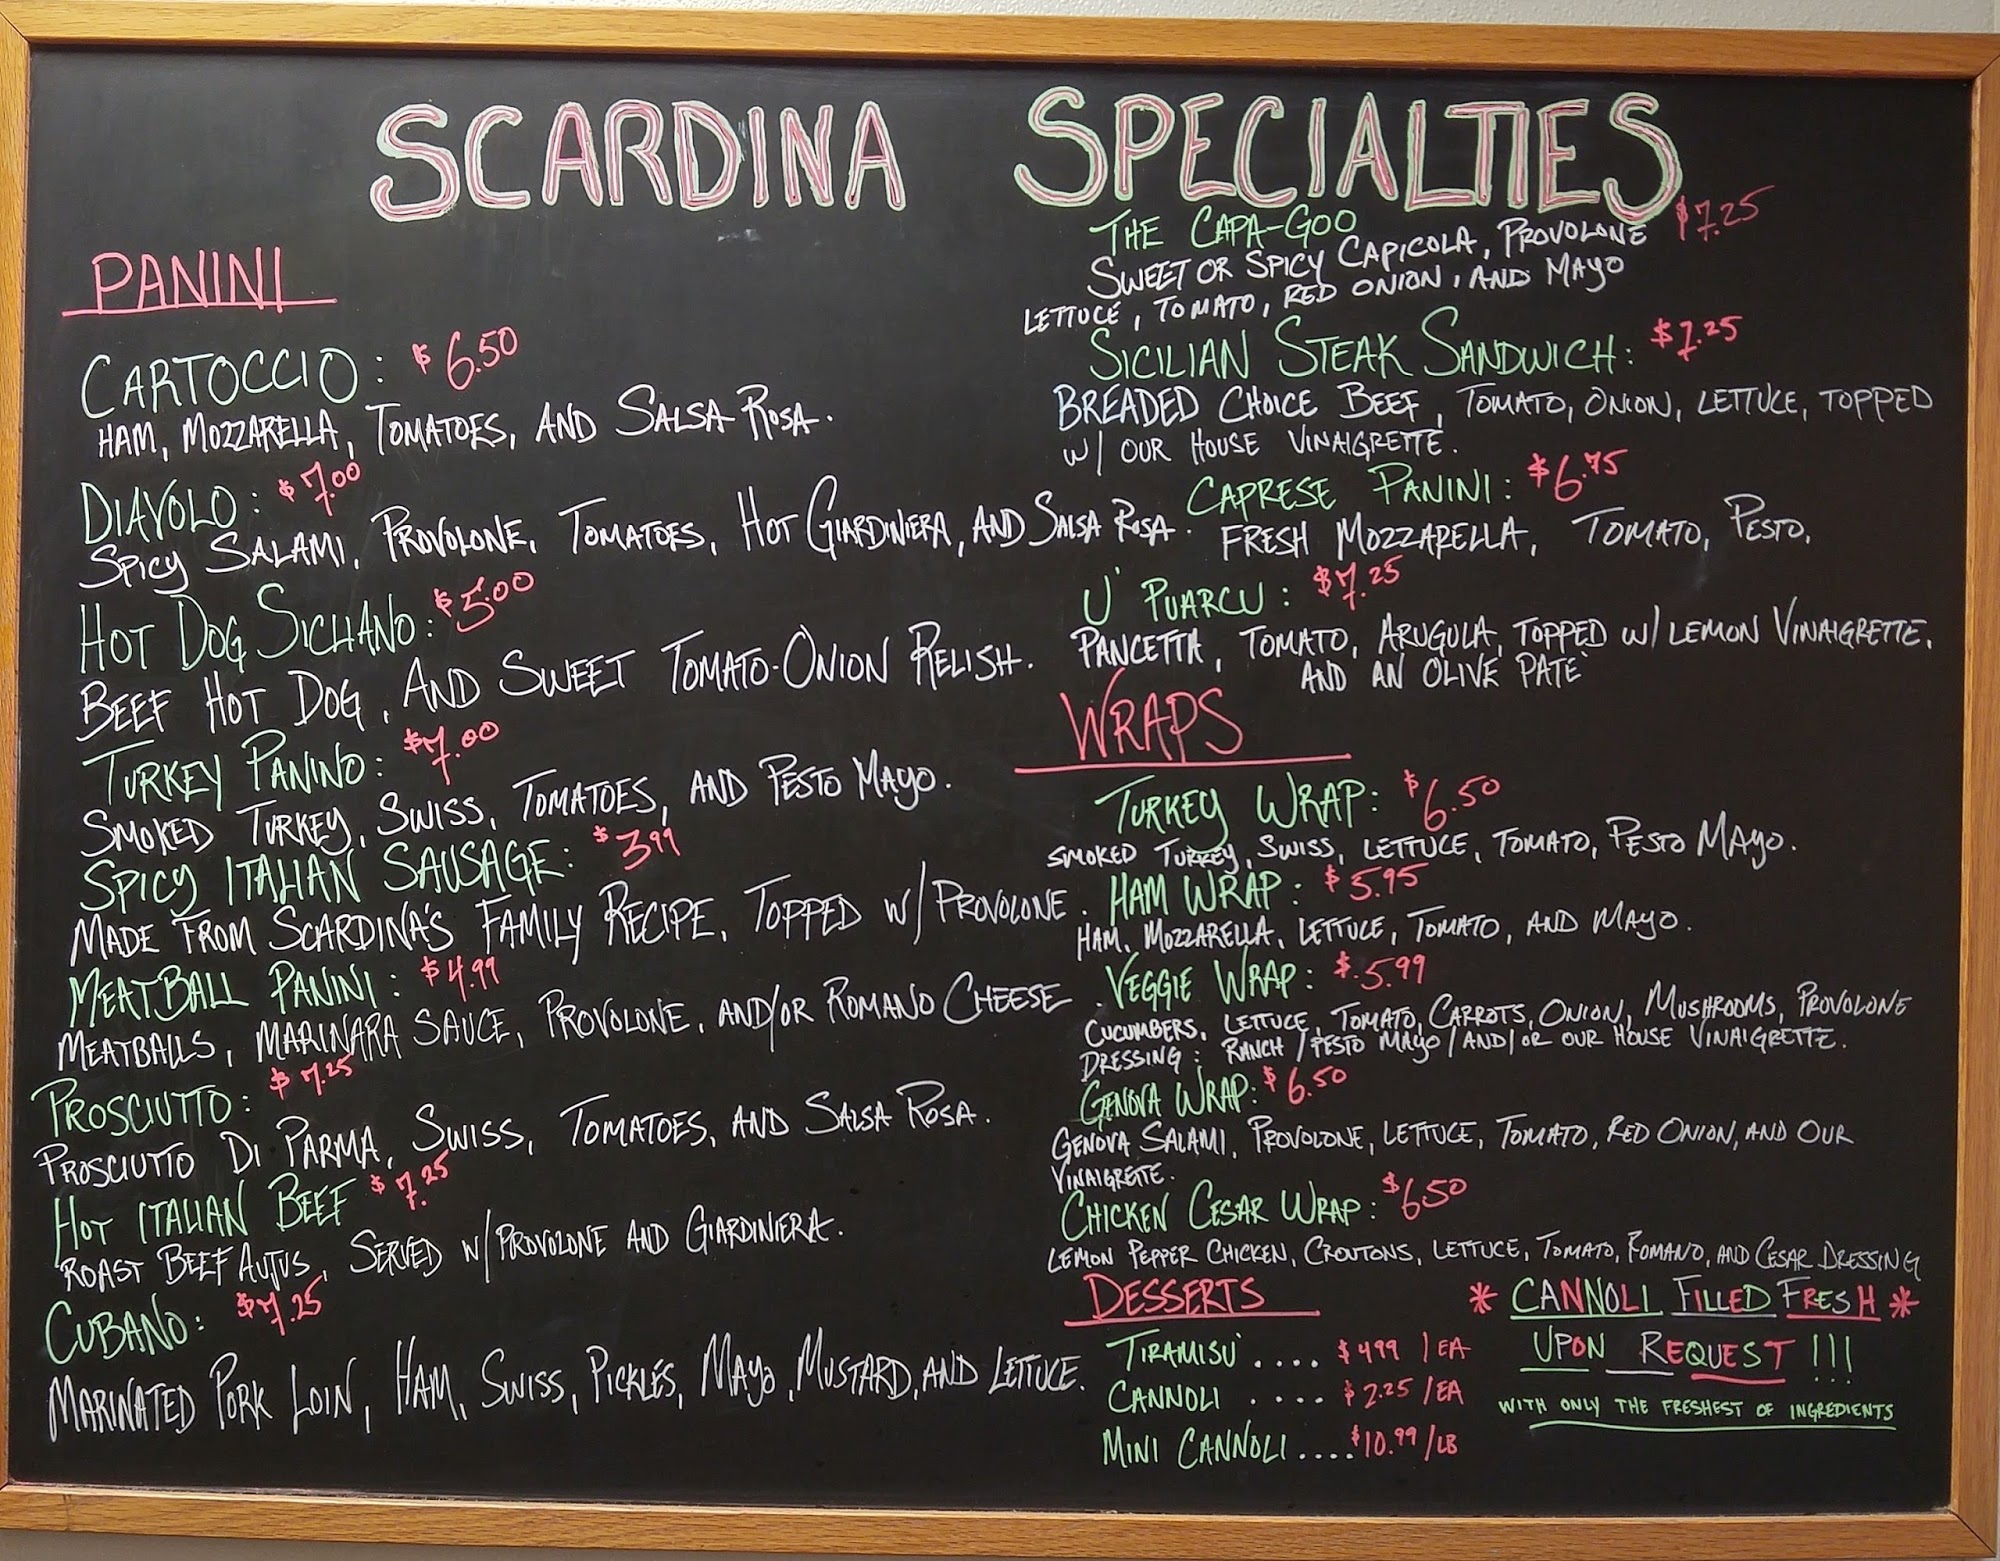 SCARDINA SPECIALTIES
PANINI
CARTOCCIO: $6.50
HAM, MOZZARELLA, TOMATOES, AND SALSA ROSA.
DIAVOLO: $7.00
SPICY SALAMI, PROVOLONE, TOMATOES, HOT GIARDINIERA, AND SALSA ROSA.
HOT DOG SICILIANO: $5.00
BEEF HOT DOG, AND SWEET TOMATO-ONION RELISH.
TURKEY PANINO: $7.00
SMOKED TURKEY, SWISS, TOMATOES, AND PESTO MAYO.
SPICY ITALIAN SAUSAGE: $3.99
MADE FROM SCARDINA'S FAMILY RECIPE, TOPPED W/ PROVOLONE.
MEATBALL PANINI: $4.99
MEATBALLS, MARINARA SAUCE, PROVOLONE, AND/OR ROMANO CHEESE.
PROSCIUTTO: $7.25
PROSCIUTTO DI PARMA, SWISS, TOMATOES, AND SALSA ROSA.
HOT ITALIAN BEEF $7.25
ROAST BEEF AUJUS, SERVED W/ PROVOLONE AND GIARDINIERA.
CUBANO: $7.25
MARINATED PORK LOIN, HAM, SWISS, PICKLES, MAYO, MUSTARD, AND LETTUCE.
THE CAPA-GOO $7.25
SWEET OR SPICY CAPICOLA, PROVOLONE
LETTUCE, TOMATO, RED ONION, AND MAYO
SICILIAN STEAK SANDWICH: $7.25
BREADED CHOICE BEEF, TOMATO, ONION, LETTUCE, TOPPED
W/ OUR HOUSE VINAIGRETTE.
CAPRESE PANINI: $6.75
FRESH MOZZARELLA, TOMATO, PESTO.
U' PUARCU: $7.25
PANCETTA, TOMATO, ARUGULA, TOPPED W/ LEMON VINAIGRETTE.
AND AN OLIVE PATE'
WRAPS
TURKEY WRAP: $6.50
SMOKED TURKEY, SWISS, LETTUCE, TOMATO, PESTO MAYO.
HAM WRAP: $5.95
HAM, MOZZARELLA, LETTUCE, TOMATO, AND MAYO.
VEGGIE WRAP: $5.99
CUCUMBERS, LETTUCE, TOMATO, CARROTS, ONION, MUSHROOMS, PROVOLONE
DRESSING: RANCH/PESTO MAYO/AND/OR OUR HOUSE VINAIGRETTE.
GENOVA WRAP: $6.50
GENOVA SALAMI, PROVOLONE, LETTUCE, TOMATO, RED ONION, AND OUR
VINAIGRETTE.
CHICKEN CESAR WRAP: $6.50
LEMON PEPPER CHICKEN, CROUTONS, LETTUCE, TOMATO, ROMANO, AND CESAR DRESSING
DESSERTS
TIRAMISU' .... $4.99 /EA
CANNOLI .... $2.25 /EA
MINI CANNOLI .... $10.99/LB
* CANNOLI FILLED FRESH *
UPON REQUEST !!!
WITH ONLY THE FRESHEST OF INGREDIENTS